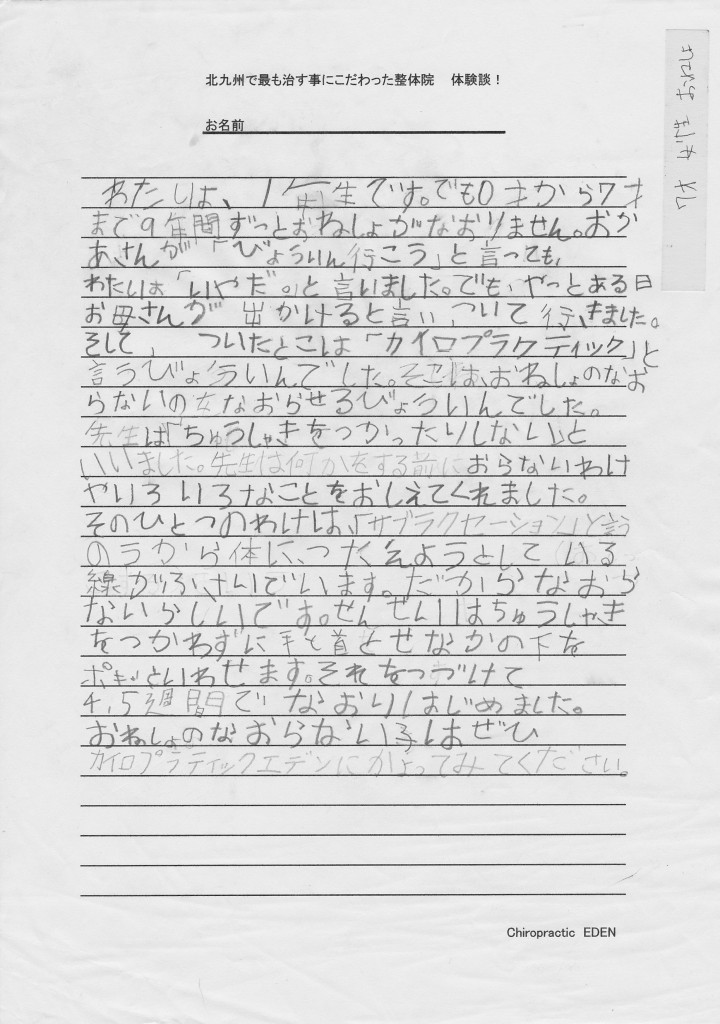 北九州で最も治す事にこだわった整体院　体験談！
お名前
わたしは、1年生です。でも0才から7才
まで9年間ずっとおねしょがなおりません。おか
あさんが「びょういん行こう」と言っても、
わたしは「いやだ。」と言いました。でも、やっとある日
お母さんが 出かけると言い、ついて行きました。
そして、 ついたとこは「カイロプラクティック」と
言うびょういんでした。そこは、おねしょのなお
らないの なおらせるびょういんでした。
先生は「ちゅうしゃきをつかったりしない」と
いいました。先生は何かをする前におらないわけ
やいろいろなことをおしえてくれました。
そのひとつのわけは、「サブラクセーション」と言う
のうから体に、つたえようとしている
線がふさいでいます。だからなおら
ないらしいです。せんせいはちゅうしゃき
をつかわずに手と首とせなかの下を
ポキッといわせます。それをつづけて
4,5週間でなおりはじめました。
おねしょのなおらない子はぜひ
カイロプラティックエデンにかよってみてください。
Chiropractic EDEN
7才